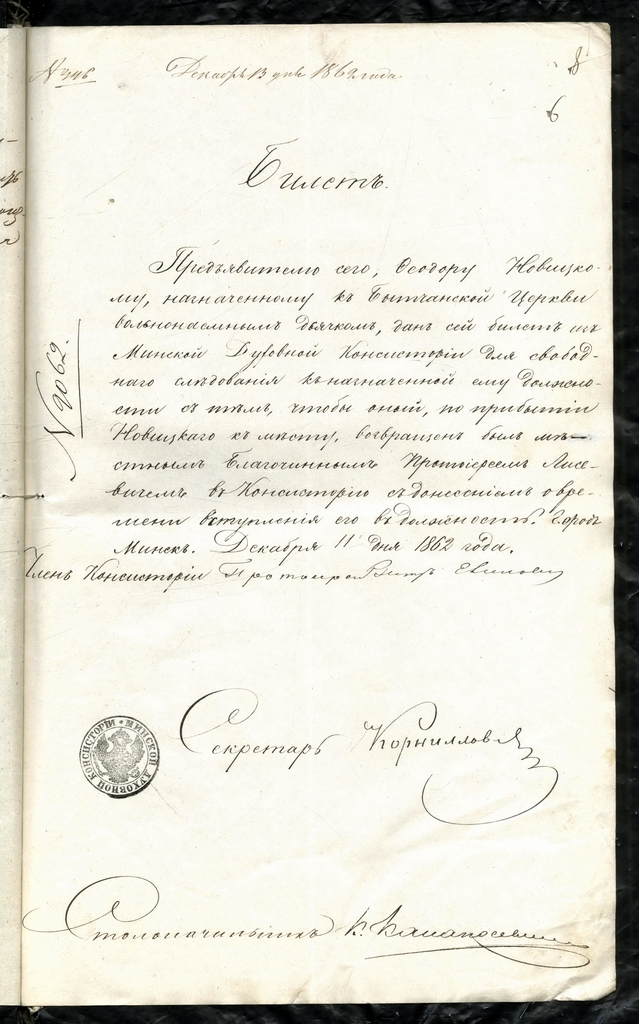 N 346 Декабрь 13 дня 1862 года.
8
6
Билетъ.
N 9062.
Предъявителю сего, Ѳеодору Новицко-
му, назначенному къ Бытчанской Церкви
вольнонаемнымъ дьячкомъ, данъ сей билетъ изъ
Минской Духовной Консисторіи для свобод-
наго слѣдованія къ назначенной ему должно-
сти съ тѣмъ, чтобы оный, по прибытіи
Новицкаго къ мѣсту, возвращенъ былъ мѣ-
стнымъ Благочиннымъ Протоіереемъ Лисе-
вичемъ въ Консисторію съ донесеніемъ о вре-
мени вступленія его въ должность. Городъ
Минскъ. Декабря 11 дня 1862 года.
Членъ Консисторіи
Секретарь Корниллов
Столоначальникъ К.
МИНСКОЙ ДУХОВНОЙ КОНСИСТОРІИ